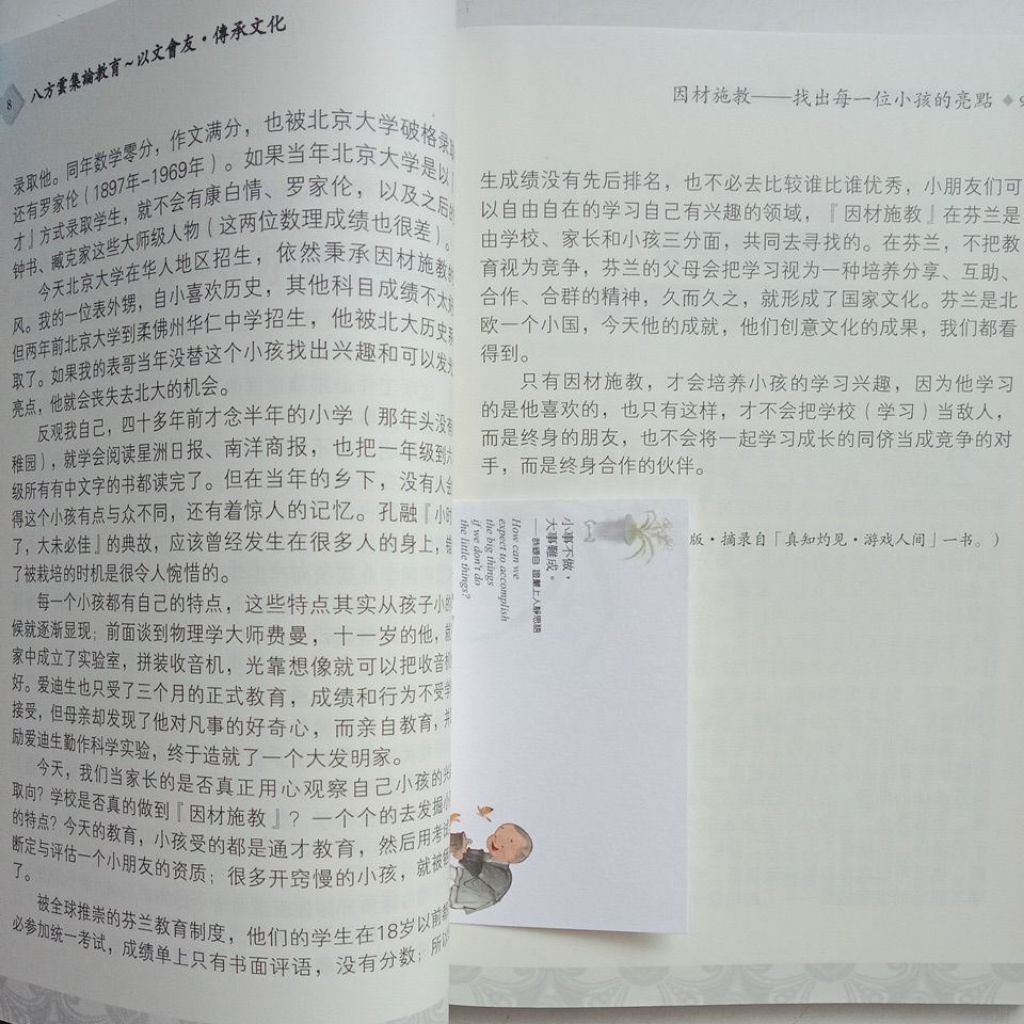 8
八方雲集論教育~以文會友·傳承文化
录取他。同年数学零分，作文满分，也被北京大学破格录取
还有罗家伦（1897年-1969年）。如果当年北京大学是以
才』方式录取学生，就不会有康白情、罗家伦，以及之后的
钟书、臧克家这些大师级人物（这两位数理成绩也很差）。
今天北京大学在华人地区招生，依然秉承因材施教的
风。我的一位表外甥，自小喜欢历史，其他科目成绩不太好
但两年前北京大学到柔佛州华仁中学招生，他被北大历史系
取了。如果我的表哥当年没替这个小孩找出兴趣和可以发光
亮点，他就会丧失去北大的机会。
反观我自己，四十多年前才念半年的小学（那年头没有
稚园），就学会阅读星洲日报、南洋商报，也把一年级到六
级所有有中文字的书都读完了。但在当年的乡下，没有人会
得这个小孩有点与众不同，还有着惊人的记忆。孔融『小时
了，大未必佳』的典故，应该曾经发生在很多人的身上，错
了被栽培的时机是很令人惋惜的。
每一个小孩都有自己的特点，这些特点其实从孩子小的
候就逐渐显现；前面谈到物理学大师费曼，十一岁的他，就
家中成立了实验室，拼装收音机，光靠想像就可以把收音机
好。爱迪生也只受了三个月的正式教育，成绩和行为不受学
接受，但母亲却发现了他对凡事的好奇心，而亲自教育，并
励爱迪生勤作科学实验，终于造就了一个大发明家。
今天，我们当家长的是否真正用心观察自己小孩的兴
取向？学校是否真的做到『因材施教』？一个个的去发掘小
的特点？今天的教育，小孩受的都是通才教育，然后用考试
断定与评估一个小朋友的资质；很多开窍慢的小孩，就被
了。
被全球推崇的芬兰教育制度，他们的学生在18岁以前都
必参加统一考试，成绩单上只有书面评语，没有分数；所以
因材施教——找出每一位小孩的亮點
生成绩没有先后排名，也不必去比较谁比谁优秀，小朋友们可
以自由自在的学习自己有兴趣的领域，『因材施教』在芬兰是
由学校、家长和小孩三分面，共同去寻找的。在芬兰，不把教
育视为竞争，芬兰的父母会把学习视为一种培养分享、互助、
合作、合群的精神，久而久之，就形成了国家文化。芬兰是北
欧一个小国，今天他的成就，他们创意文化的成果，我们都看
得到。
只有因材施教，才会培养小孩的学习兴趣，因为他学习
的是他喜欢的，也只有这样，才不会把学校（学习）当敌人，
而是终身的朋友，也不会将一起学习成长的同侪当成竞争的对
手，而是终身合作的伙伴。
版·摘录自「真知灼见·游戏人间」一书。）
小事不做，
大事難成。
——恭錄自 證嚴上人靜思語
How can we
expect to accomplish
the big things
if we don't do
the little things?